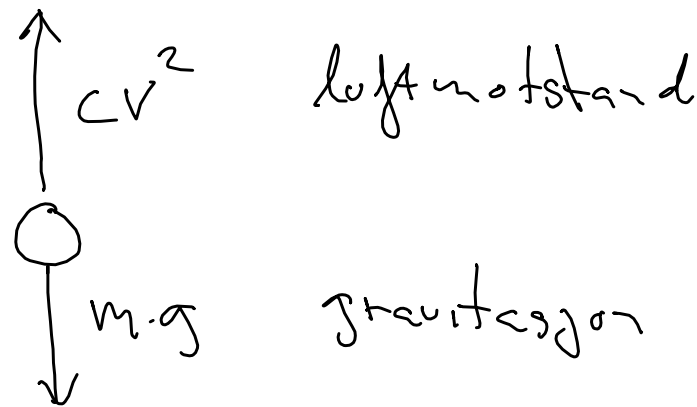 cv² luftmotstand
m·g gravitasjon